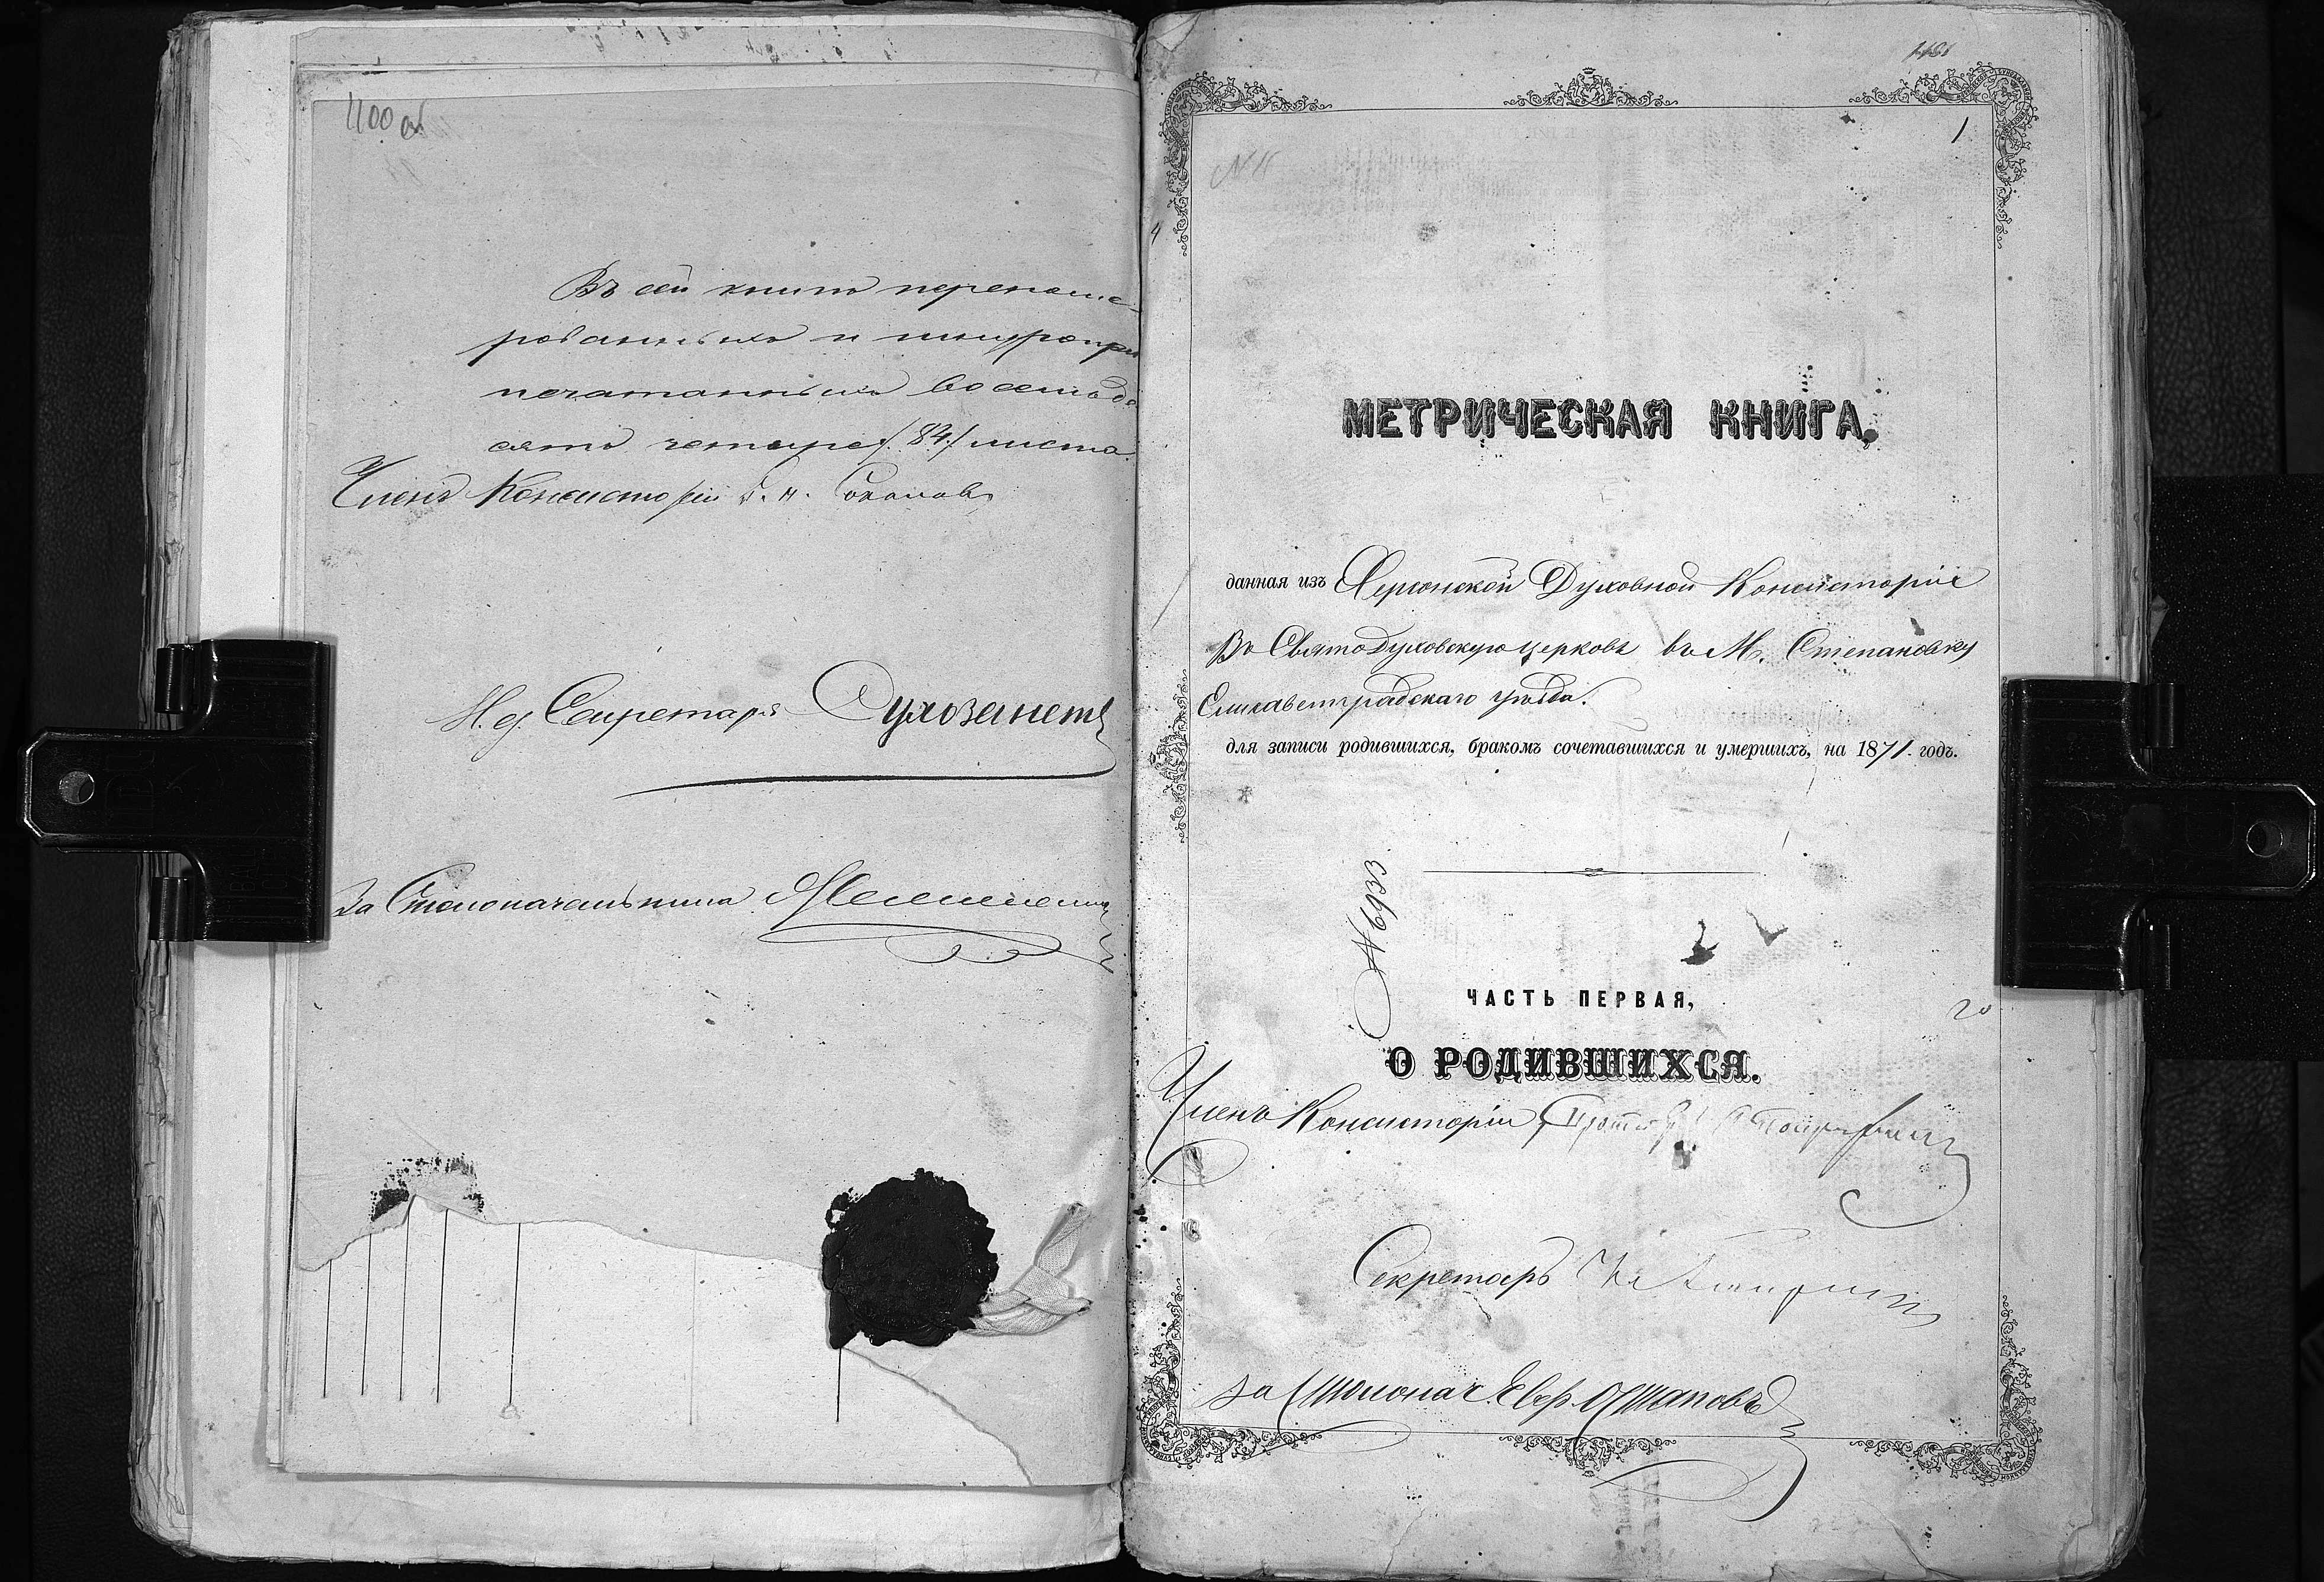 1100 об
Въ сей книгѣ перенуме-
рованныхъ и шнуропри
печатанныхъ восемьде
сятъ четыре /84/ листа.
Членъ Консисторіи Соколовъ
И. д. Секретаря
За Столоначальника
1
N 11
МЕТРИЧЕСКАЯ КНИГА,
данная изъ Херсонской Духовной Консисторіи
Въ Святодуховскую церковь въ М. Степановку
Елисаветградскаго уѣзда.
для записи родившихся, бракомъ сочетавшихся и умершихъ, на 1871 годъ.
№ 6933
ЧАСТЬ ПЕРВАЯ,
20
О РОДИВШИХСЯ.
Членъ Консисторіи
Секретарь
за Столонач. Остаповъ